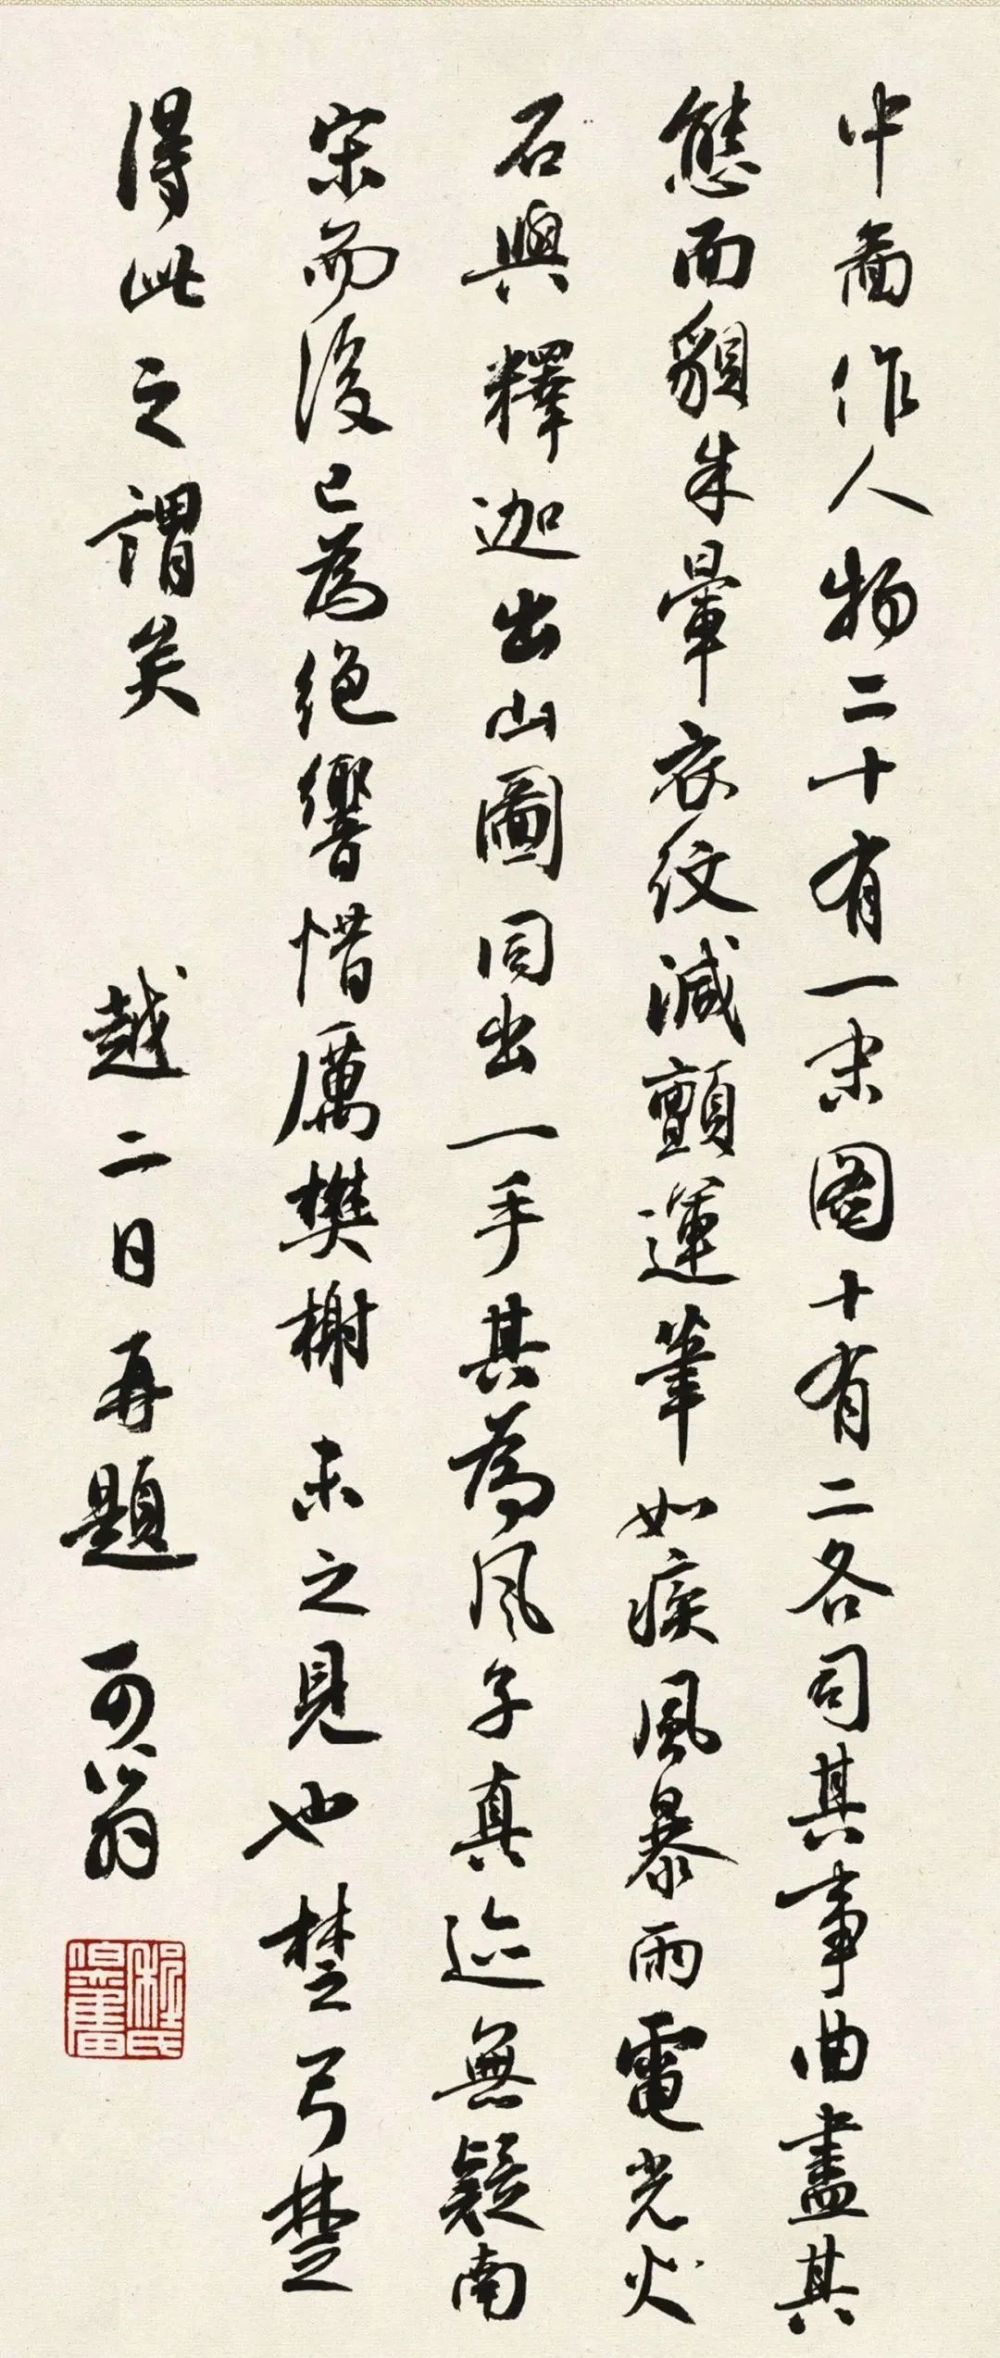 中畵作人物二十有一宋图十有二各司其事曲盡其
態而貌朱暈衣紋減顫運筆如疾風暴雨電光火
石與釋迦出山圖同出一手其為风子真迹無疑南
宋而後已為絕響惜厲樊榭未之見也楚弓楚
得此之謂矣
越二日再題 可翁